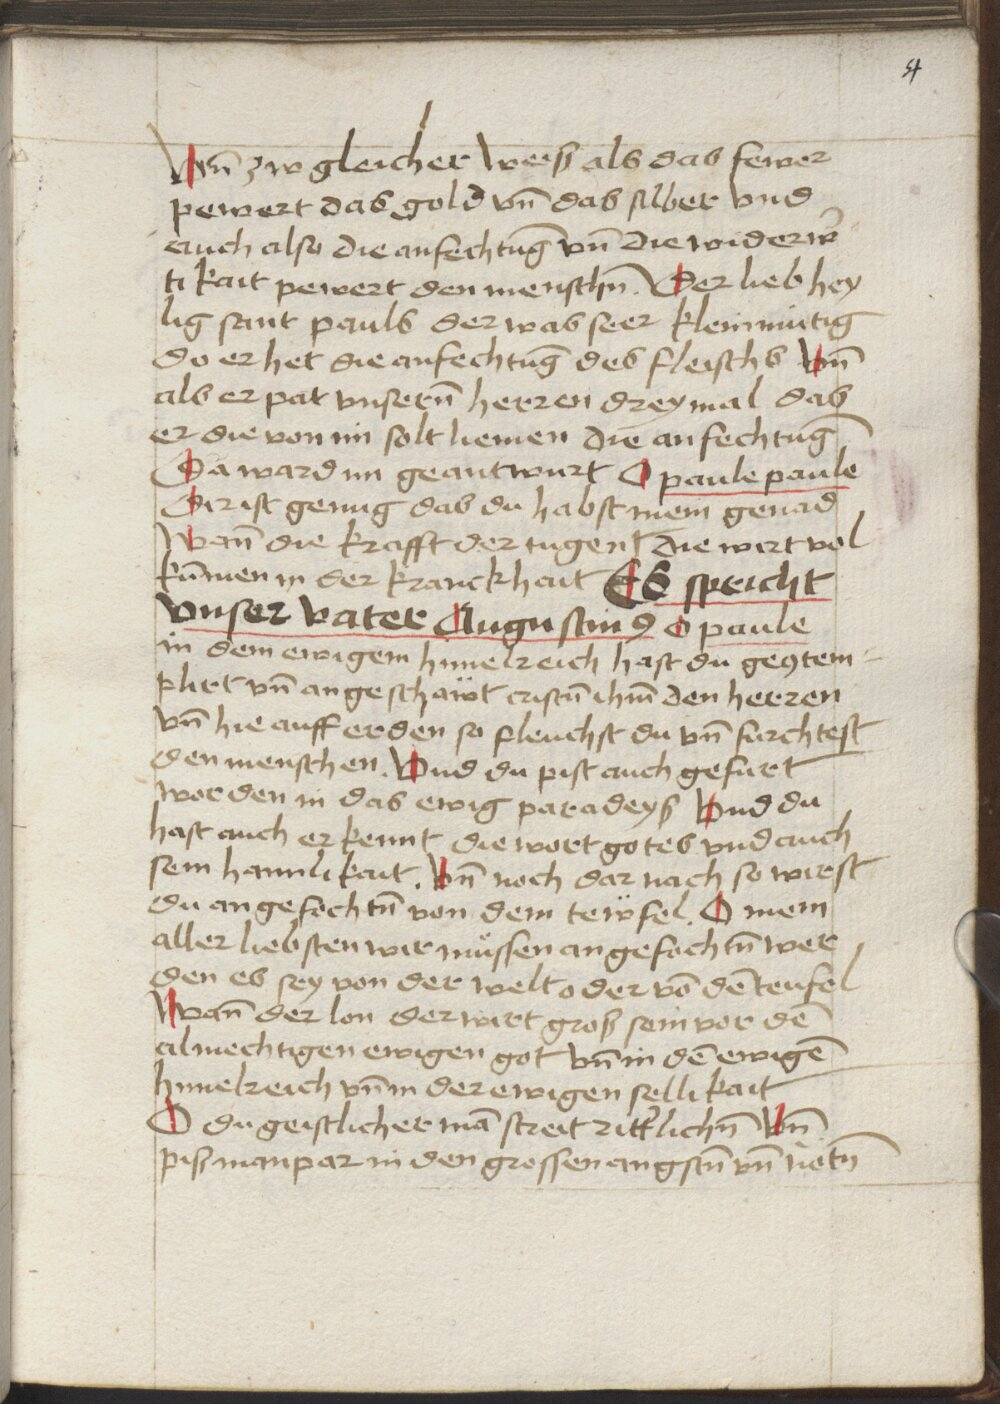 4
Vnd̄ zw gleicher weyß als das fewer
pewert das gold vn̄ das silber vnd
auch also die anfechtūg vn̄ die widerw̄
tikait pewert den menschn̄. Der lieb hey
lig sant pauls der was seer kleinmütig
do er het die anfechtūg des fleischs Vn̄
als er pat vnsern̄ herren dreymal das
er die von im solt nemen die anfechtūg
Da ward im geantwurt O paule paule
Dir ist genug das du habst mein genad
Wan̄ die krafft der tugent die wirt vol
kūmen in der kranckhait Es spricht
vnser vater Augustin9 O paule
in dem ewigem himelreich hast du ge9tem
plirt vn̄ angeschawt cristū ihm̄ den herren
vn̄ hie auff erden so fleuchst du vn̄ furchtest
den menschen. Vnd du pist auch gefurt
worden in das ewig paradeyß Vnd du
hast auch erkennt die wort gotes vnd auch
sein hamlikait. Vn̄ noch dar nach so wirst
du angefochtn̄ von dem tewfel. O mein
aller liebsten wir müssen angefochtn̄ wer
den es sey von der welt oder vō dē teufel
Wan̄ der lon der wirt groß sein vor dē
almechtigen ewigen got vn̄ in dē ewigē
himelreich vn̄ in der ewigen sellikait
O du geistlicher mā streit ritt̓lichn̄ Vn̄
piß manpar in den grossen angstn̄ vn̄ nötn̄